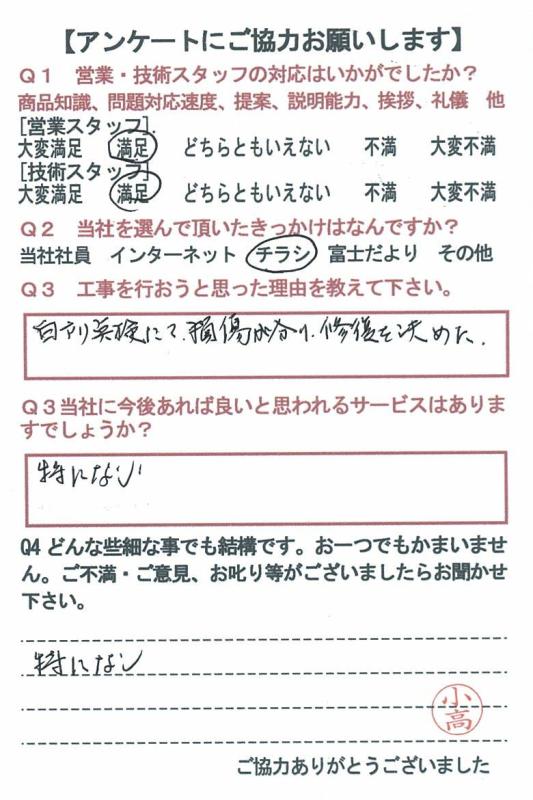 【アンケートにご協力お願いします】
Q1 営業・技術スタッフの対応はいかがでしたか?
商品知識、問題対応速度、提案、説明能力、挨拶、礼儀 他
[営業スタッフ]
大変満足 満足 どちらともいえない 不満 大変不満
[技術スタッフ]
大変満足 満足 どちらともいえない 不満 大変不満
Q2 当社を選んで頂いたきっかけはなんですか?
当社社員 インターネット チラシ 富士だより その他
Q3 工事を行おうと思った理由を教えて下さい。
にて、損傷が分り、修復を決めた.
Q3当社に今後あれば良いと思われるサービスはありま
すでしょうか?
特にない
Q4 どんな些細な事でも結構です。お一つでもかまいませ
ん。ご不満・ご意見、お叱り等がございましたらお聞かせ
下さい。
特になし
小
高
ご協力ありがとうございました